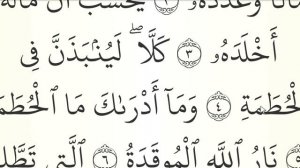 وَعَدَّدَهُۥ ٢ يَحْسَبُ أَنَّ مَالَهُ
أَخْلَدَهُۥ ٣ كَلَّا ۖ لَيُنۢبَذَنَّ فِى
ٱلْحُطَمَةِ ٤ وَمَآ أَدْرَىٰكَ مَا ٱلْحُطَمَ
نَارُ ٱللَّهِ ٱلْمُوقَدَةُ ٦ ٱلَّتِى تَطَّلِ